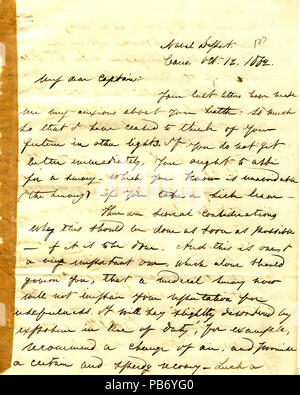 Naval Depot.
Cairo, Oct. 12, 1862.
My dear Captain:
Your last letters have made
me very anxious about your health, so much
so that I have ceased to think of your
future in other lights. If you do not get
better immediately, you ought to ask
for a survey which you know is unavoidable
(the survey) if you take a sick leave.
There are several considerations
why this should be done as soon as possible
— if it is to be done. And this is one, &
a very important one, which alone should
govern you, that a medical survey now
will not impair your reputation for
usefulness. It will say slightly disordered by
exposure in line of duty, for example,
recommend a change of air, and promise
a certain and speedy recovery — Such a
alamy
Image ID: PB6YG0
www.alamy.com